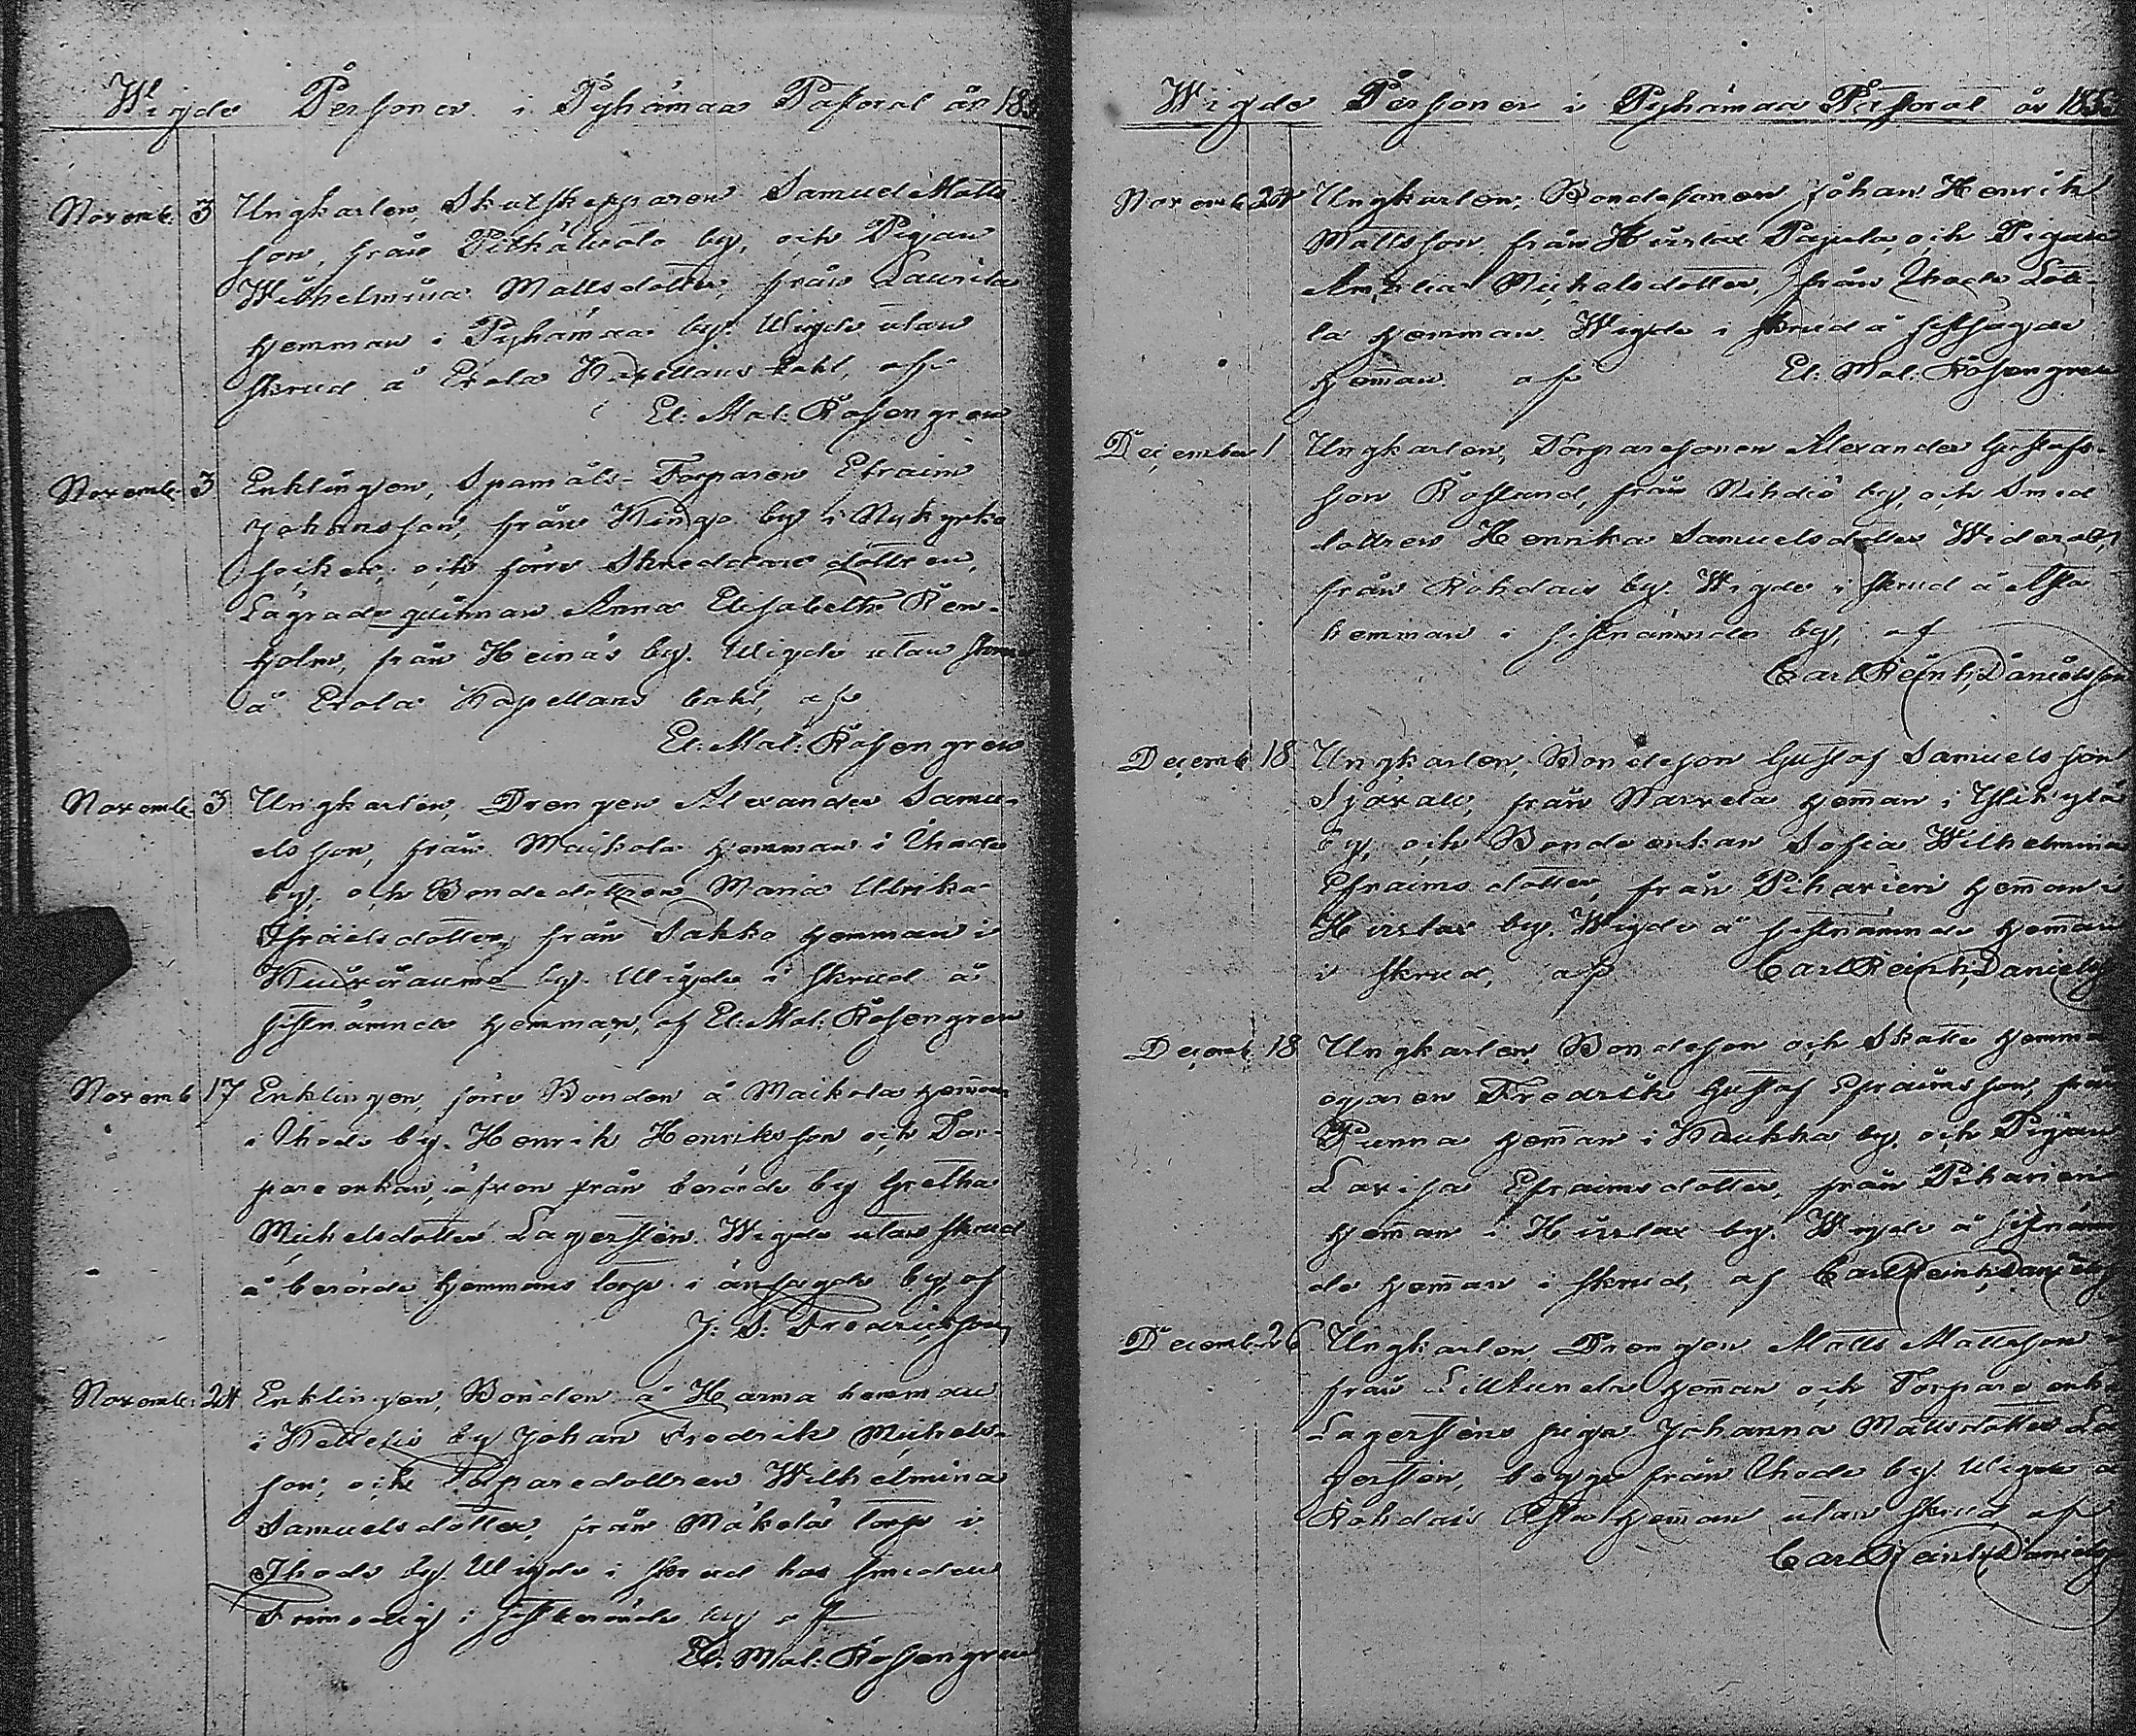 Wigde Personer i Pyhämaa Pastorat år 185
Novemb. 3 Ungkarlen, Skutskepparen Samuel Matts-
son, från Pitkäluoto by, och Pigan
Wilhelmina Mattsdotter, från Laurila
hemman i Pyhämaa by. Wigde utan
skrud å Erola Kapellans bohl, af
El: Mal: Rosengren
Novemb. 3 Enklingen, Spamåls-Torparen Efraim
Johansson, från Kingo by i Nykyrko
socken, och förre Skreddare dottren,
Lägrade quinnan Anna Elisabeth Ren-
holm, från Heinäs by. Wigde utan skrud
å Erola Kapellans bohl, af
El: Mal: Rosengren
Novemb. 3 Ungkarlen, Drengen Alexander Samu-
elsson, från Maikola hemman i Ihode
by, och Bondedottren Maria Ulrika
Israelsdotter, från Sakko hemman i
by. Wigde i skrud å
sistnämnde hemman, af El: Mal: Rosengren
Novemb 17 Enklingen, förre Bonden å Maikola hemman
i Ihode by, Henrik Henriksson och Tor-
pare enkan, äfven från berörde by Gretha
Michelsdotter Lagersten. Wigde utan skrud
å berörde hemmans torp i ansagde by, af
J: S: Fredricsson
Novemb: 24 Enklingen, Bonden å Harma hemman
i by Johan Fredrik Michels-
son, och Torparedottren Wilhelmina
Samuelsdotter, från Mäkelä torp i
Ihode by. Wigde i skrud hos smeden
Frimodig i sistberörde by af
El: Mal: Rosengren
Wigde Personer i Pyhämaa Pastorat år 1853
Novemb 24 Ungkarlen, Bondesonen Johan Henrik
Mattsson, från Hirslax Pajula, och Pigan
Amalia Michelsdotter, från Ihode
la hemman. Wigde i skrud å sistsagde
hem̄an af El: Mal: Rosengren
December 1 Ungkarlen, Torparesonen Alexander Gustafs-
son Roslund, från Nihdiö by, och Smed
dottren Henrika Samuelsdotter
från Rohdais by. Wigde i skrud å
hemman i sistnämnde by, af
Carl Reinh, Danielsson
Decemb 18 Ungkarlen, Bondeson Gustaf Samuelsson
från hem̄an i
by, och Bonde enkan Sofia Wilhelmina
Efraimsdotter, från Pihavieri hem̄an i
Hirslax by. Wigde å sistnämnde hem̄an
i skrud, af Carl Reinh, Daniels
Decemb 18 Ungkarlen, Bondeson och Skatte hemmans
egaren Fredrik Gustaf Efraimsson, från
Punna hem̄an i Kaukka by, och Pigan
Lovisa Efraimsdotter, från Pihavieri
hem̄an i Hirslax by. Wigde å sistnämn
de hem̄an i skrud, af Carl Reinh, Daniels
Decemb 26 Ungkarlen, Drengen Matts Mattsson
från hem̄an och Torpare enk
Lagerstens piga Johanna Mattsdotter La
gersten, begge från Ihode by. Wigde å
Rohdais hem̄an utan skrud, af
Carl Reinh, Daniels